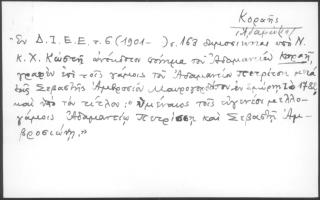 Κοραῆς
(Ἀδαμάντιος)
"Ἐν Δ.Ι.Ε.Ε. τ. 6 (1901- ) σ. 163 δημοσιεύεται ὑπὸ Ν.
κ. Χ. Κώστη ἀνέκδοτον ποίημα τοῦ Ἀδαμαντίου Κοραῆ,
γραφὲν ἐπὶ τοῖς γάμοις τοῦ Ἀδαμαντίου Πετρίτση μετὰ
τῆς Σεβαστῆς Ἀμβροσίου Μαυρογορδάτου ἐν Σμύρνῃ τῷ 1782
καὶ ὑπὸ τὸν τίτλον: "Ὑμέναιος τοῖς εὐγενέσι μελλο-
γάμοις Ἀδαμαντίῳ Πετρίτσῃ καὶ Σεβαστῇ Ἀμ-
βροσιώνῃ."